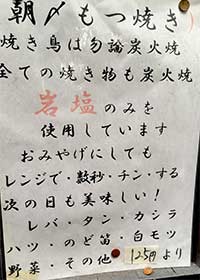 朝〆もつ焼き
焼き鳥は勿論炭火焼
全ての焼き物も炭火焼
岩塩のみを
使用しています
おみやげにしても
レンジで・数秒・チン・する
次の日も美味しい!
レバ・タン・カシラ
ハツ・のど笛・白モツ
野菜・その他 125円より